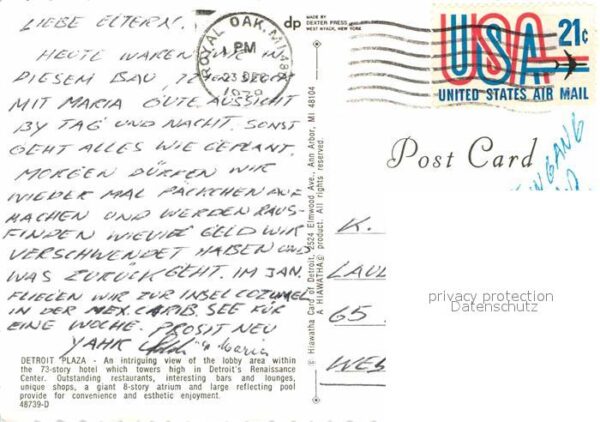 LIEBE ELTERN!
HEUTE WAREN WIR IN
DIESEM BAU,
MIT MARIA GUTE AUSSICHT
BY TAG UND NACHT. SONST
GEHT ALLES WIE GEPLANT.
MORGEN DÜRFEN WIR
WIEDER MAL PÄCKCHEN AUF-
MACHEN UND WERDEN RAUS-
FINDEN WIEVIEL GELD WIR
VERSCHWENDET HABEN UND
WAS ZURÜCKGEHT. IM JAN.
FLIEGEN WIR ZUR INSEL COZUMEL
IN DER MEX. CARIB. SEE FÜR
EINE WOCHE. PROSIT NEU
YAHR Maria
DETROIT PLAZA - An intriguing view of the lobby area within
the 73-story hotel which towers high in Detroit's Renaissance
Center. Outstanding restaurants, interesting bars and lounges,
unique shops, a giant 8-story atrium and large reflecting pool
provide for convenience and esthetic enjoyment.
48739-D
ROYAL OAK, MI 48
PM
23 DEC
dp
MADE BY
DEXTER PRESS
WEST NYACK, NEW YORK
© Hiawatha Card of Detroit, 2524 Elmwood Ave., Ann Arbor, MI 48104
A HIAWATHA product. All rights reserved.
USA 21c
UNITED STATES AIR MAIL
Post Card
K.
65
privacy protection
Datenschutz